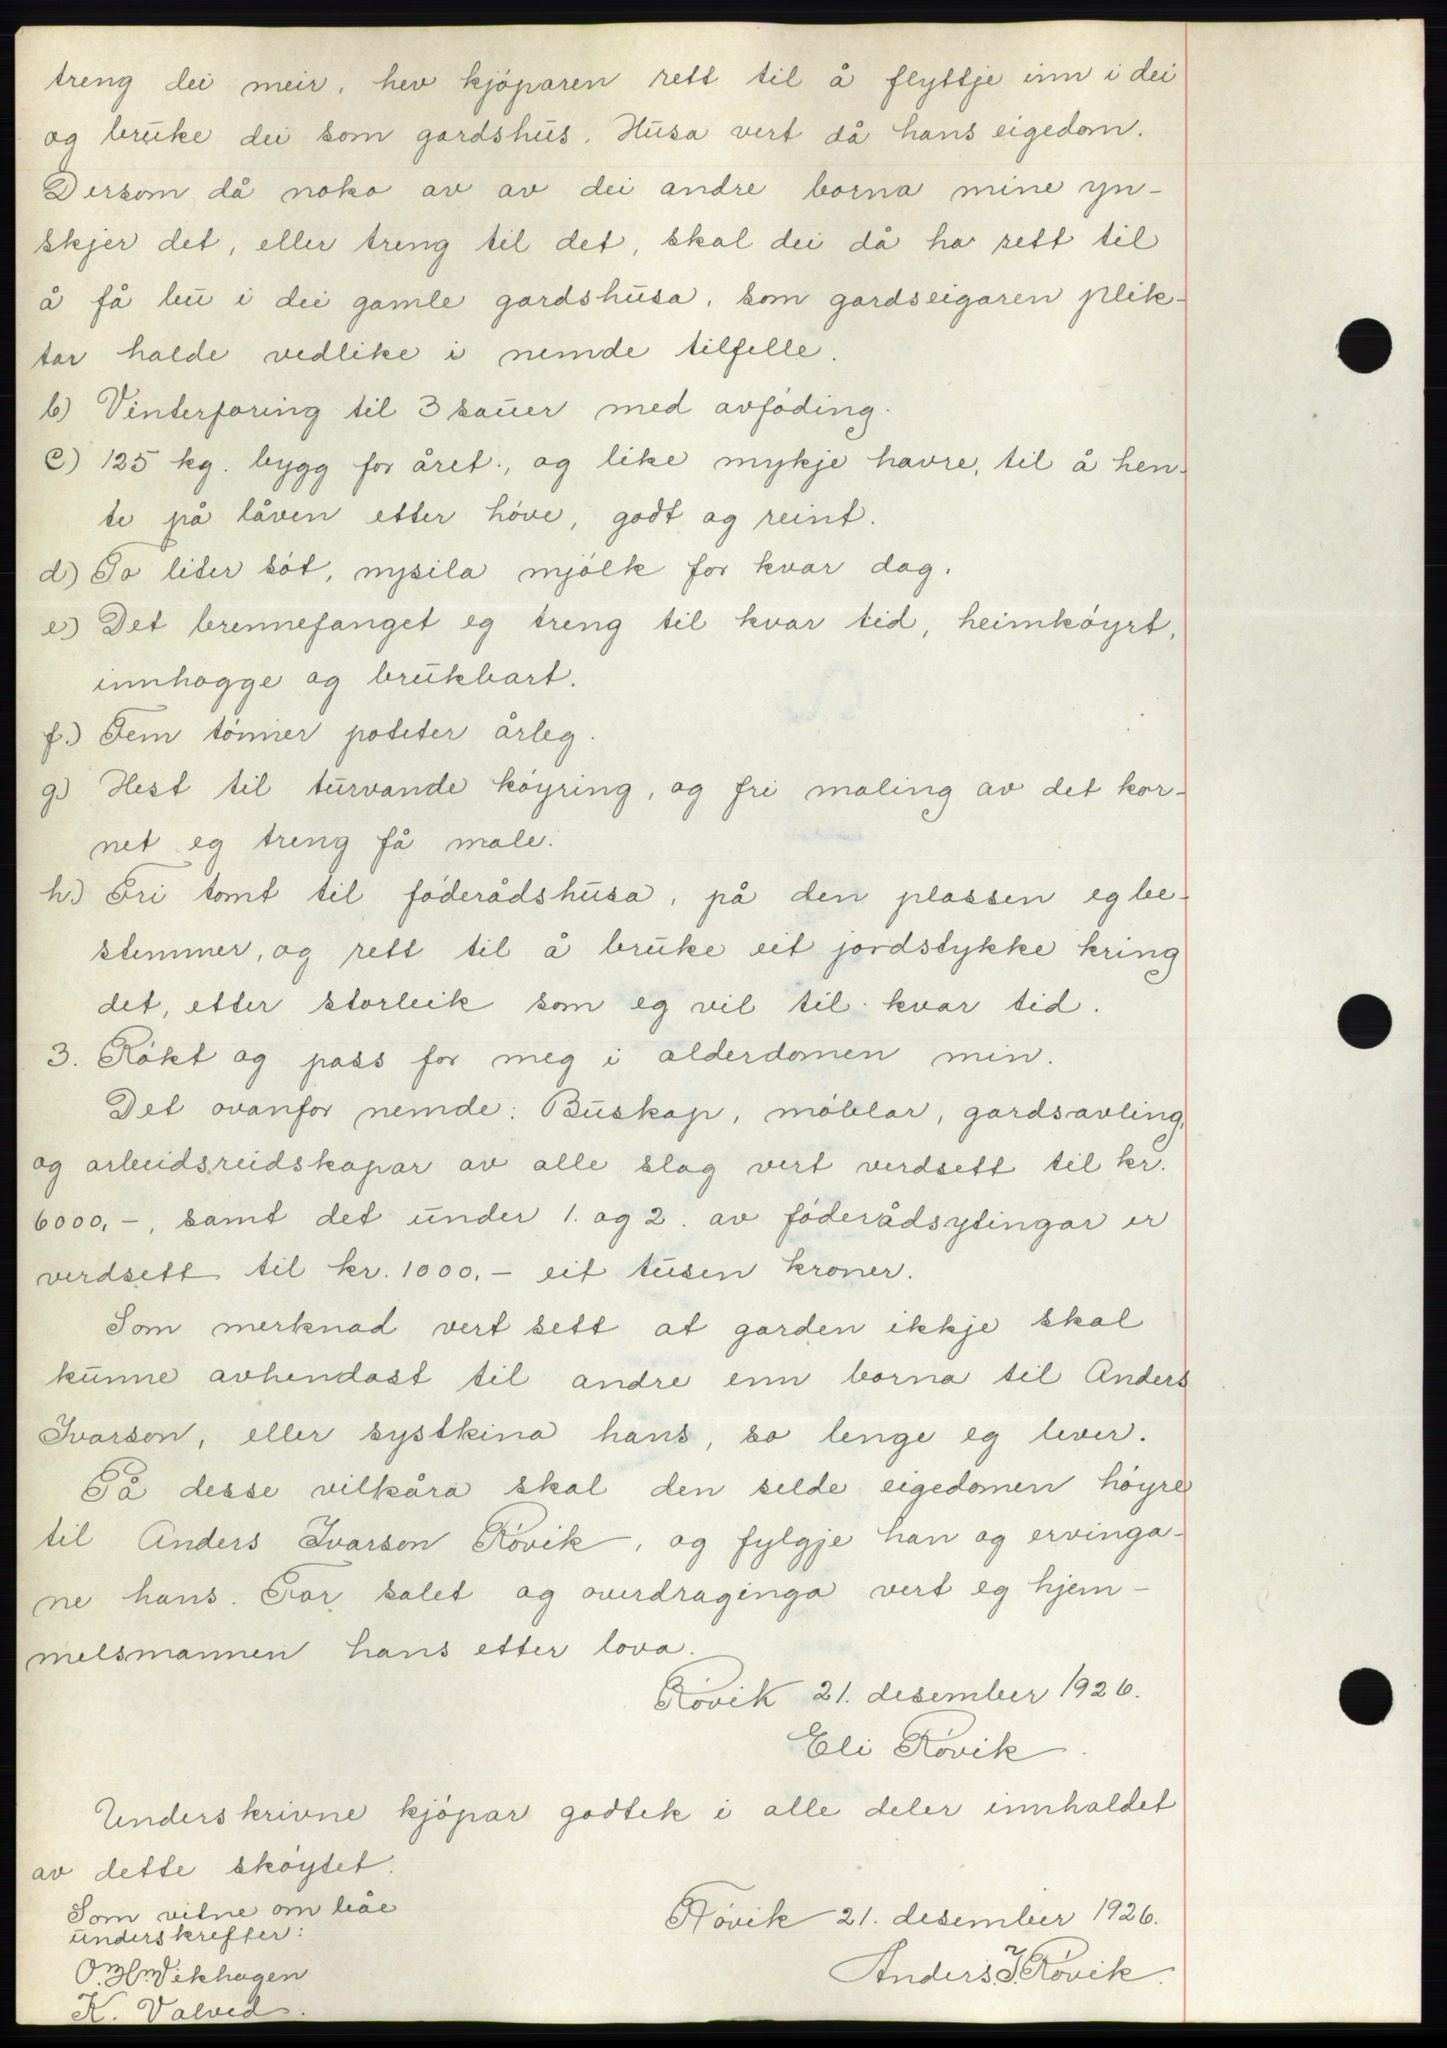 treng dei meir, hev kjöparen rett til å flyttje inn i dei
og bruke dei som gardshus. Husa vert då hans eigedom.
Dersom då noko av av dei andre borna mine yn-
skjer det, eller treng til det, skal dei då ha rett til
å få bu i dei gamle gardshusa, som gardseigaren plik-
tar halde vedlike i nemde tilfelle.
b) Vinterforing til 3 sauer med avföding.
c) 125 kg. bygg for året, og like mykje havre, til å hen-
te på låven etter höve, godt og reint.
d) To liter söt, nysila mjölk for kvar dag.
e) Det brennefanget eg treng til kvar tid, heimköyrt,
innhogge og brukbart.
f.) Fem tönner poteter årleg.
g) Hest til turvande köyring, og fri maling av det kor-
net eg treng få male.
h.) Fri tomt til föderådshusa, på den plassen eg be-
stemmer, og rett til å bruke eit jordstykke kring
det, etter storleik som eg vil til kvar tid.
3. Rökt og pass for meg i alderdomen min.
Det ovanfor nemde: Buskap, möblar, gardsavling,
og arbeidsreidskapar av alle slag vert verdsett til kr.
6000,-, samt det under 1. og 2. av föderådsytingar er
verdsett til kr. 1000,- eit tusen kroner.
Som merknad vert sett at garden ikkje skal
kunne avhendast til andre enn borna til Anders
Ivarson, eller systkina hans, so lenge eg lever.
På desse vilkåra skal den selde eigedomen höyre
til Anders Ivarson Rövik, og fylgje han og ervinga-
ne hans. For salet og overdraginga vert eg hjem-
melsmannen hans etter lova.
Rövik 21. desember 1926.
Eli Rövik.
Underskrivne kjöpar godtek i alle deler innhaldet
av dette sköytet.
Som vitne om båe
underskrefter:
Rövik 21. desember 1926.
O. H. Vikhagen
Anders I. Rövik.
K. Valved.